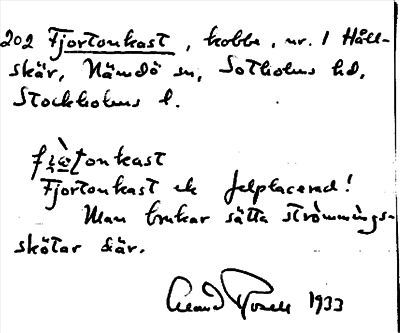 202 Fjortonkast, kobbe, nr. 1 Håll-
skär, Nämdö sn, Sotholms hd,
Stockholms l.
fjo̱tonkast
Fjortonkast ek felplacerad!
Man brukar sätta strömmings-
skötar där.
1933